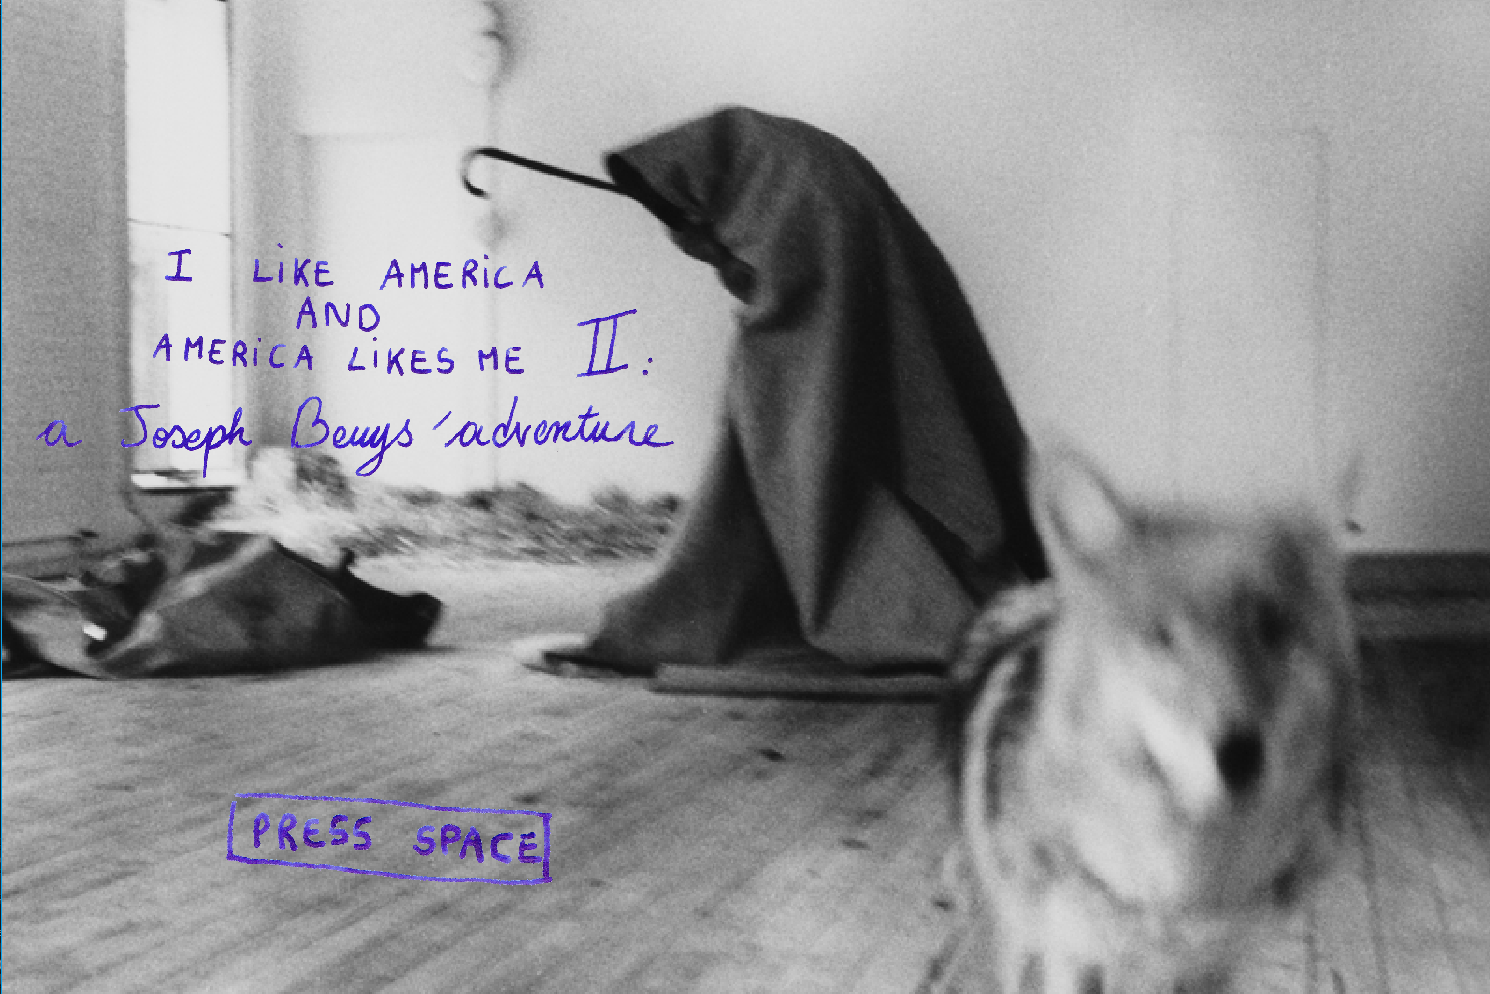 I LiKE AMERiCA
AND
AMERiCA LiKES ME II:
a Joseph Beuys' adventure
PRESS SPACE